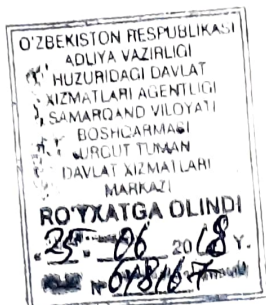 O'ZBEKISTON RESPUBLIKASI
ADLIYA VAZIRLIGI
HUZURIDAGI DAVLAT
XIZMATLARI AGENTLIGI
SAMARQAND VILOYATI
BOSHQARMASI
URGUT TUMAN
DAVLAT XIZMATLARI
MARKAZI
RO'YXATGA OLINDI
25. 06 2018 Y.
№